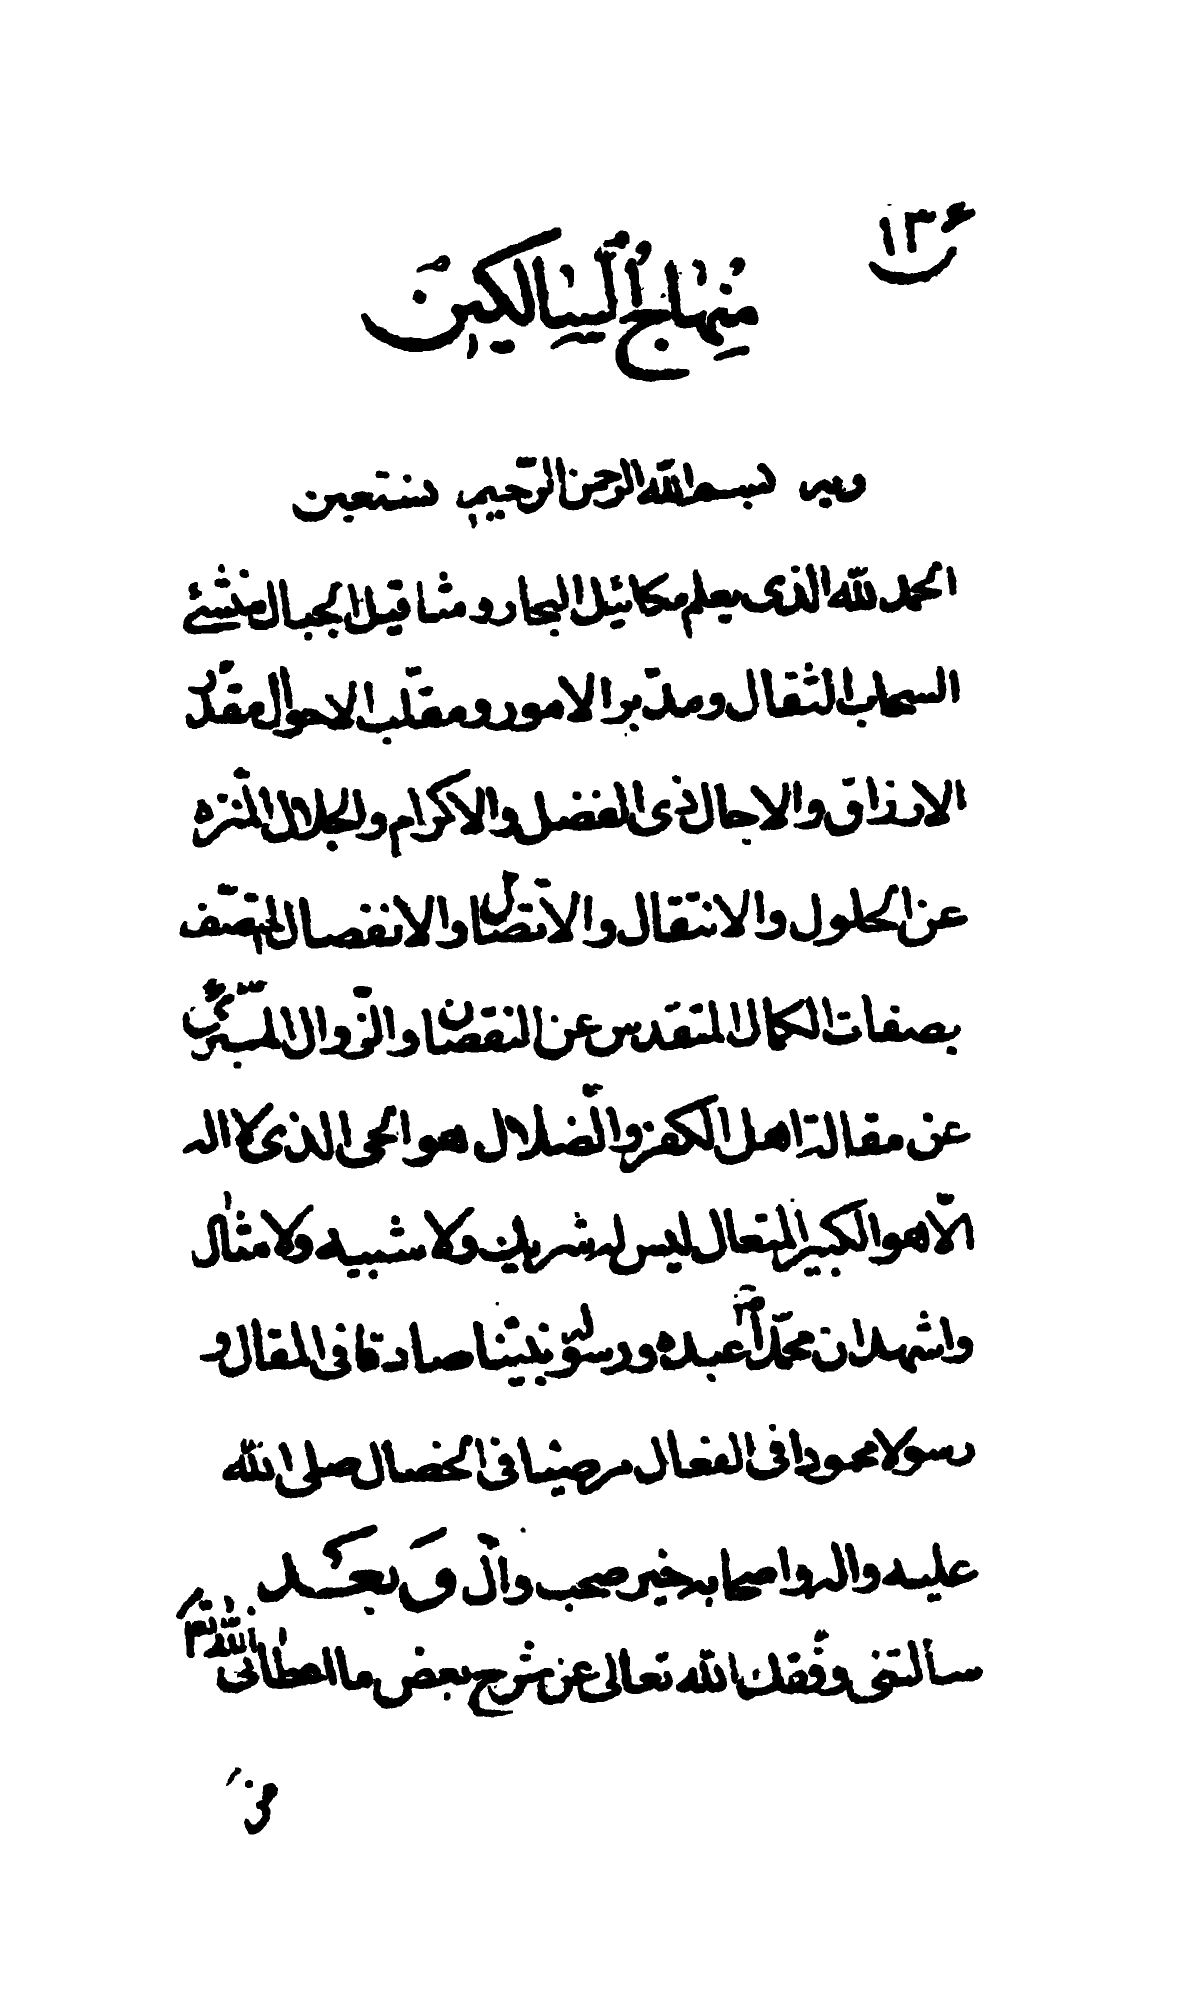 ١٣۶
مِنْهَاجُ السَّالِكِينَ
وبه بسم الله الرّحمن الرّحيم نستعين
الحمد لله الذى يعلم مكائيل البحار و مثاقيل الجبال منشئ
السحاب الثقال ومدبّر الامور و مقلّب الاحوال مقدّر
الارزاق والاجال ذى الفضل والاكرام والجلال المنزه
عن الحلول والانتقال والاتّصال والانفصال المتّصف
بصفات الكمال المتقدس عن النقصان والزّوال المتبرّئ
عن مقالة اهل الكفر والضّلال هو الحى الذى لا اله
الّا هو الكبير المتعال ليس له شريك ولا شبيه ولا مثال
واشهد ان محمّداً عبده ورسوله نبيّنا صادقا فى المقال و
رسولا محمودا فى الفعال مرضيا فى الخصال صلى الله
عليه واله واصحابه خير صحب وآل وَبعد
سالتنى وفّقك الله تعالى عن شرح بعض ما اعطانى الله تعم
من